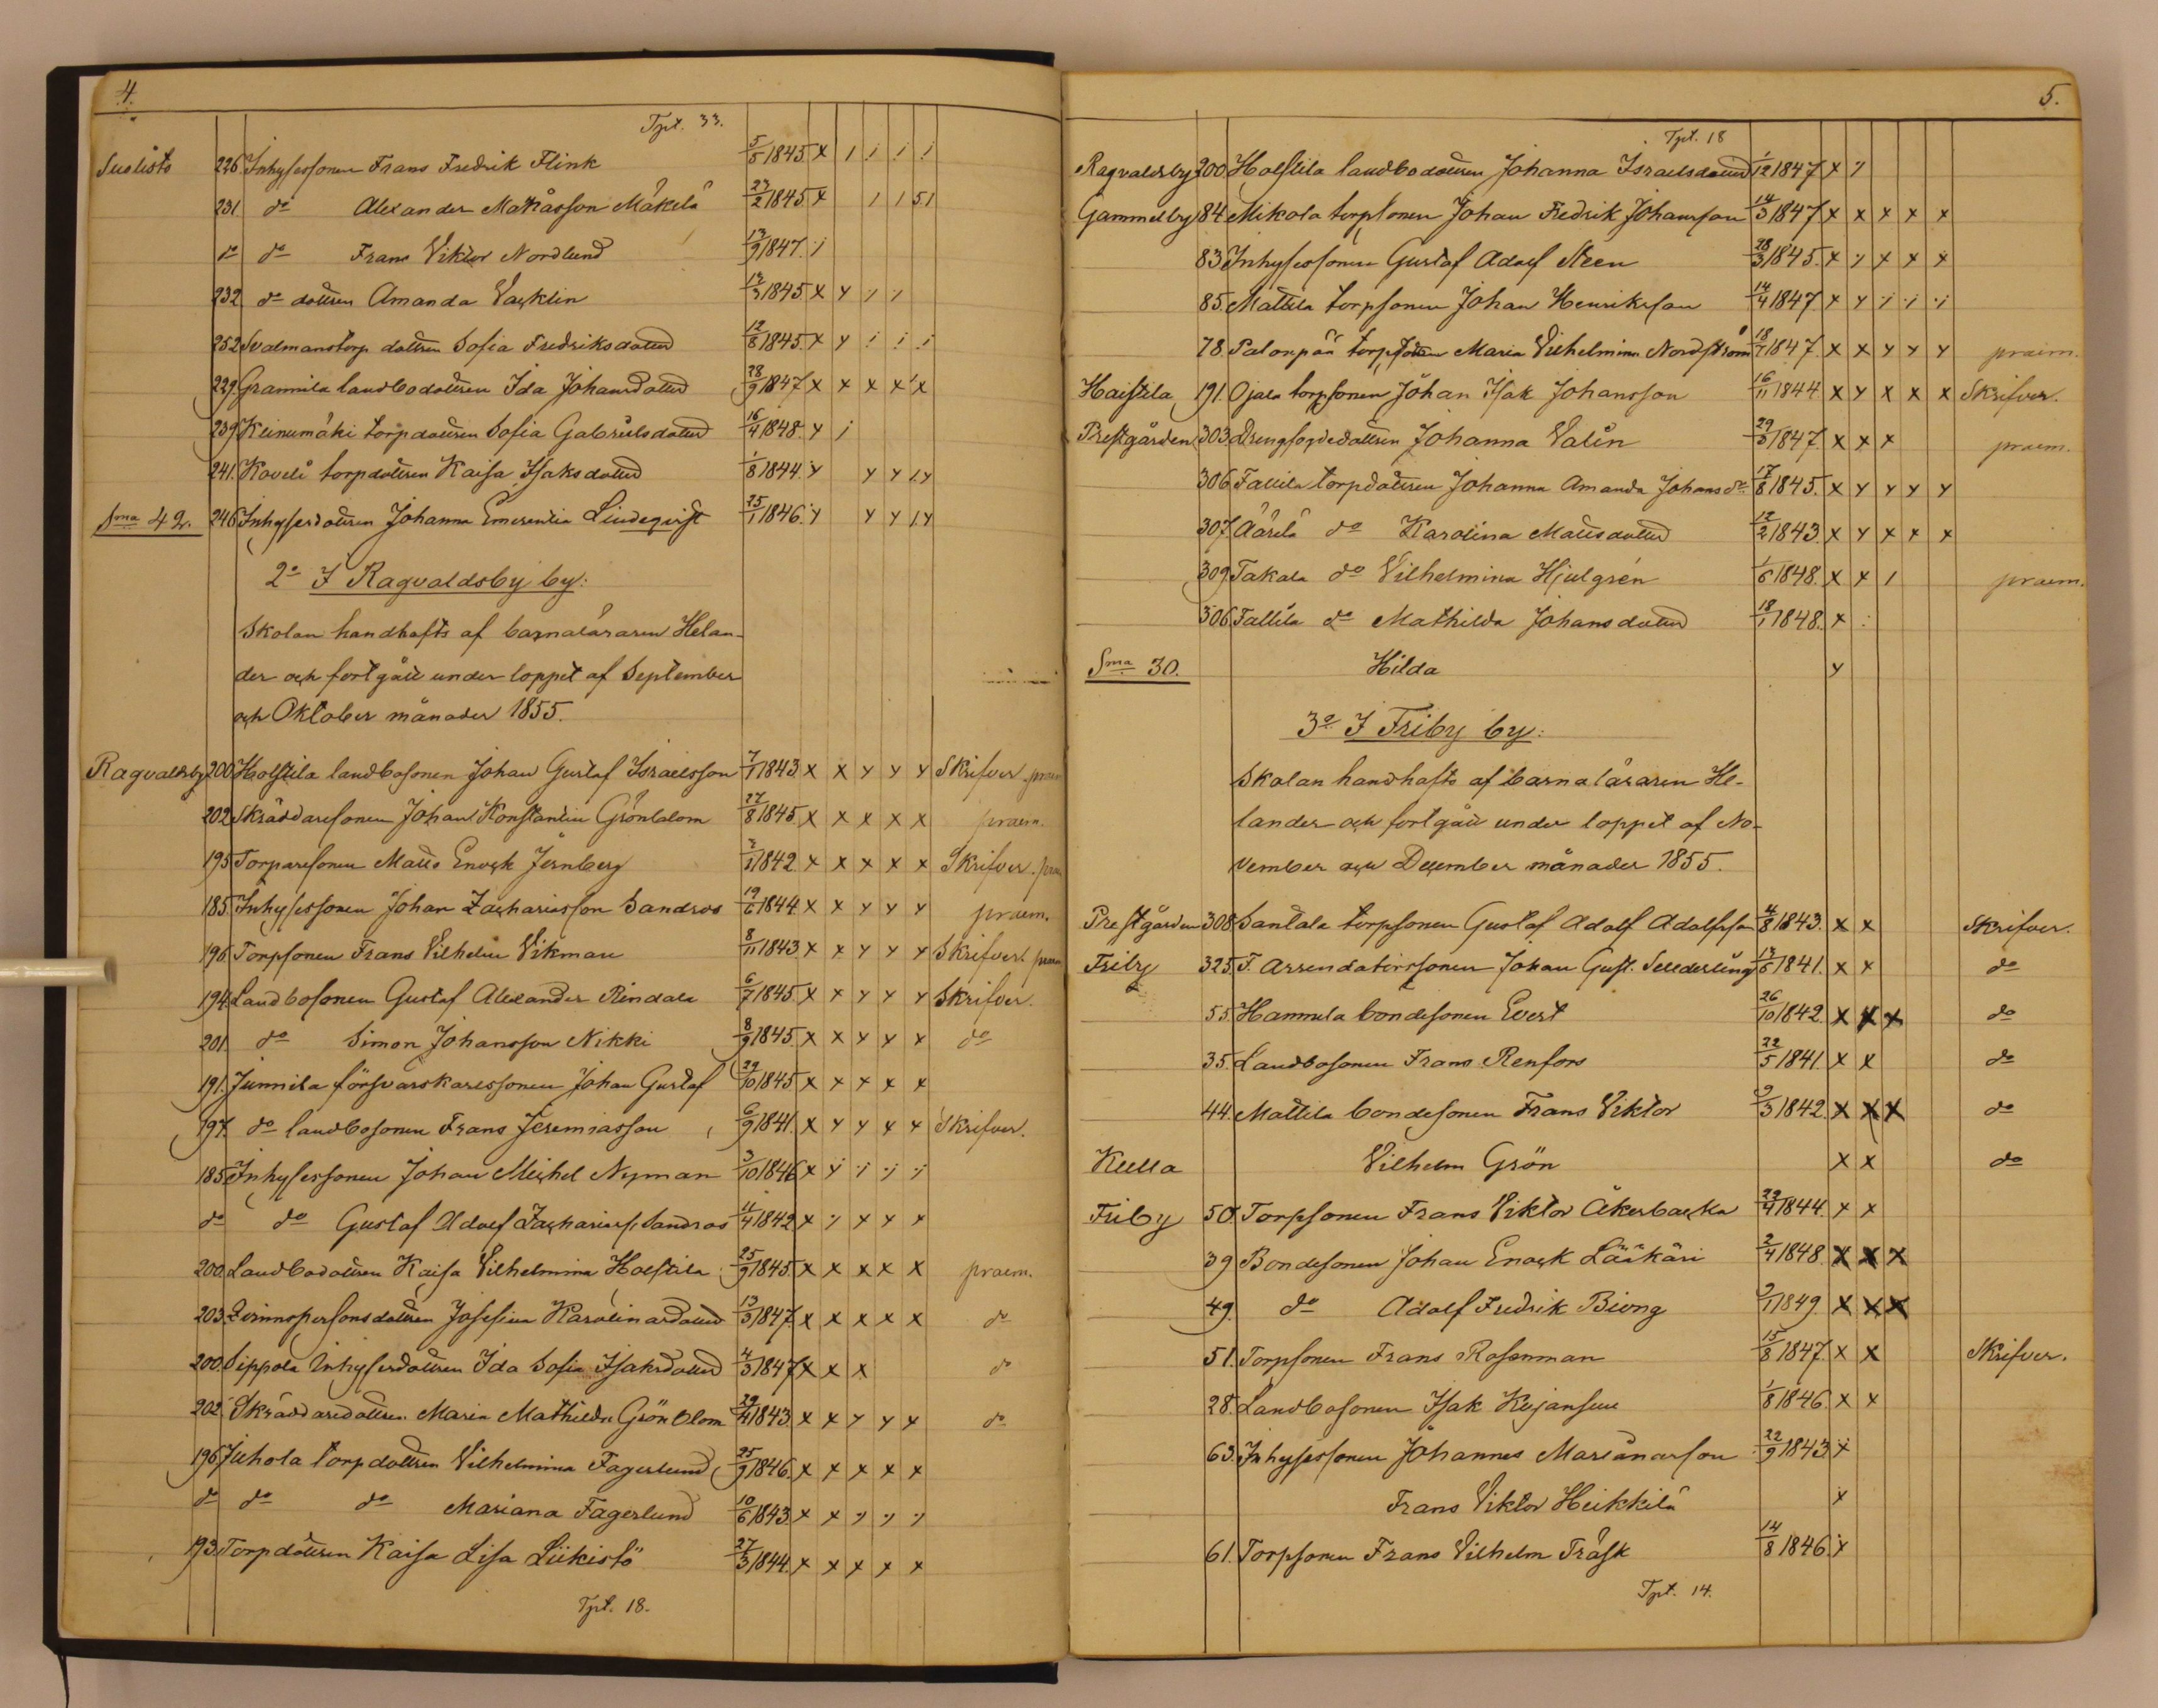 4.
Tpt. 33.
Suolisto 226. Inhysessonen Frans Fredrik Flink 5/5 1845. x / i i i
231. do Alexander Matsåsson Mäkelä 27/2 1845. x / / 5 1
do do Frans Viktor Nordlund 13/9 1847. i
232 do dottren Amanda Vacklin 13/3 1845 x y / /
252 Svedmanstorp dottren Sofia Fredriksdotter 12/8 1845. x y i i i
229. Grannila landbodottren Ida Johansdotter 28/9 1847 x x x x x
239. Keinumäki torpdottren Sofia Gabrielsdotter 16/4 1848. y i
241. Koveli torpdottren Kaisa Isaksdotter 1/8 1844. y y y 1 y
Sma 42. 246. Inhysesdottren Johanna Emerentia Lindeqvist 25/1 1846. y y y 1 y
2o I Ragvaldsby by:
Skolan handhafts af barnaläraren Helan-
der och fortgått under loppet af September
och Oktober månader 1855.
Ragvaldsby 200. Holstila landbosonen Johan Gustaf Israelsson 7/1 1843. x x y y y Skrifver. praem
202. Skräddaresonen Johan Konstantin Grönblom 27/8 1845. x x x x x praem.
195. Torparesonen Matts Enock Jernberg 1842. x x x x x Skrifver. praem
185. Inhysessonen Johan Zachariasson Sandros 19/6 1844. x x y y y praem.
196. Torpsonen Frans Vilhelm Vikman 8/11 1843 x x y y y Skrifver. praem
194. Landbosonen Gustaf Alexander Rindala 6/7 1845. x x y y y Skrifver.
201. do Simon Johansson Nikki 8/9 1845 x x y y x do
191. Junnila försvarskarlssonen Johan Gustaf 29/10 1845 x x x x x
197. do landbosonen Frans Jeremiasson 6/9 1841. x y y x x Skrifver.
185. Inhysessonen Johan Michel Nyman 3/10 1846 x y i i i
do do Gustaf Adolf Zachariass. Sandros 11/4 1842 x y x x x
200. Landbodottren Kaisa Vilhelmina Holstila 25/9 1845. x x x x x praem.
203. Qvinnspersonsdottren Josefina Karolinasdotter 13/3 1847. x x x x x do
200. Sippola Inhysesdottren Ida Sofia Isaksdotter 4/3 1847 x x x do
202. Skräddaredottren Maria Mathilda Grönblom 29/4 1843. x x y y y do
196. Juhola torpdottren Vilhelmina Fagerlund 25/9 1846. x x x x x
do do do Mariana Fagerlund 10/6 1843. x x y y y
193. Torpdottren Kaisa Lisa Liikistö 27/3 1844. x x x x x
Tpt. 18.
5.
Tpt. 18
Ragvaldsby 200 Holstila landbodottren Johanna Israelsdotter 1/12 1847 x y
Gammelby 84 Mikola torpsonen Johan Fredrik Johansson 14/3 1847 x x x x x
83 Inhysessonen Gustaf Adolf Steen 28/3 1845. x y x x x
85. Mattila torpsonen Johan Henriksson 14/4 1847. x y i i i
78. Palonpää torpdottren Maria Vilhelmina Nordström 18/7 1847. x x y y y praem.
Haistila 191. Ojala torpsonen Johan Isak Johansson 16/11 1844 x y x x x Skrifver.
Prestgården 303. Drengfogdedottren Johanna Valin 29/5 1847. x x x praem.
306. Tallila torpdottren Johanna Amanda Johansdr 17/8 1845. x y y y y
307. Äärilä do Karolina Mattsdotter 12/2 1843. x y x x x
309. Takala do Vilhelmina Hjulgrén 1/6 1848. x x / praem.
306. Tallila do Mathilda Johansdotter 18/1 1848. x :
Sma 30. Hilda y
3o I Friby by:
Skolan handhafts af barnaläraren He-
lander och fortgått under loppet af No-
vember och December månader 1855.
Prestgården 308. Santala torpsonen Gustaf Adolf Adolfsson 4/8 1843. x x Skrifver.
Friby 325. F. Arrendatorssonen Johan Gust. Sederling 13/6 1841. x x do
55. Hannula bondesonen Evert 26/10 1842. x x x do
35. Landbosonen Frans Renfors 22/5 1841. x x do
44. Mattila bondesonen Frans Viktor 9/3 1842. x x x do
Kulla Vilhelm Grön x x do
Friby 50. Torpsonen Frans Viktor Åkerbacka 29/4 1844. x x
39 Bondesonen Johan Enock Lääkäri 2/4 1848. x x x
49. do Adolf Fredrik Biong 9/1 1849. x x x
51. Torpsonen Frans Rosenman 15/8 1847. x x Skrifver.
28. Landbosonen Isak Kujansuu 1/8 1846. x x
63. Inhysessonen Johannes Marianasson 22/9 1843 x
Frans Viktor Heikkilä x
61. Torpsonen Frans Vilhelm Träsk 14/8 1846. x
Tpt. 14.